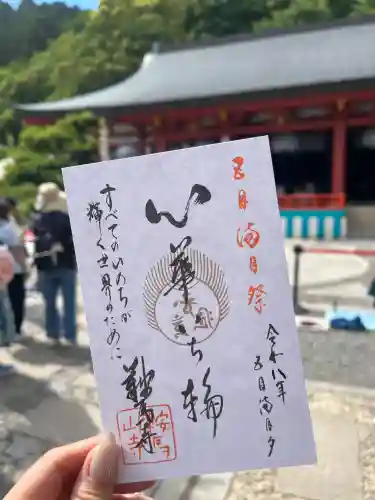 五月満月祭
令和八年
五月満月夕
心華
すべてのいのちが
輝く世界のために
鞍馬寺